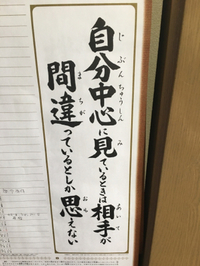 自分中心に見ているときは相手が
間違っているとしか思えない